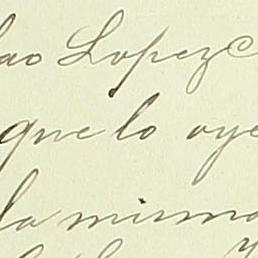 ao Lopez
que lo oye
la misma